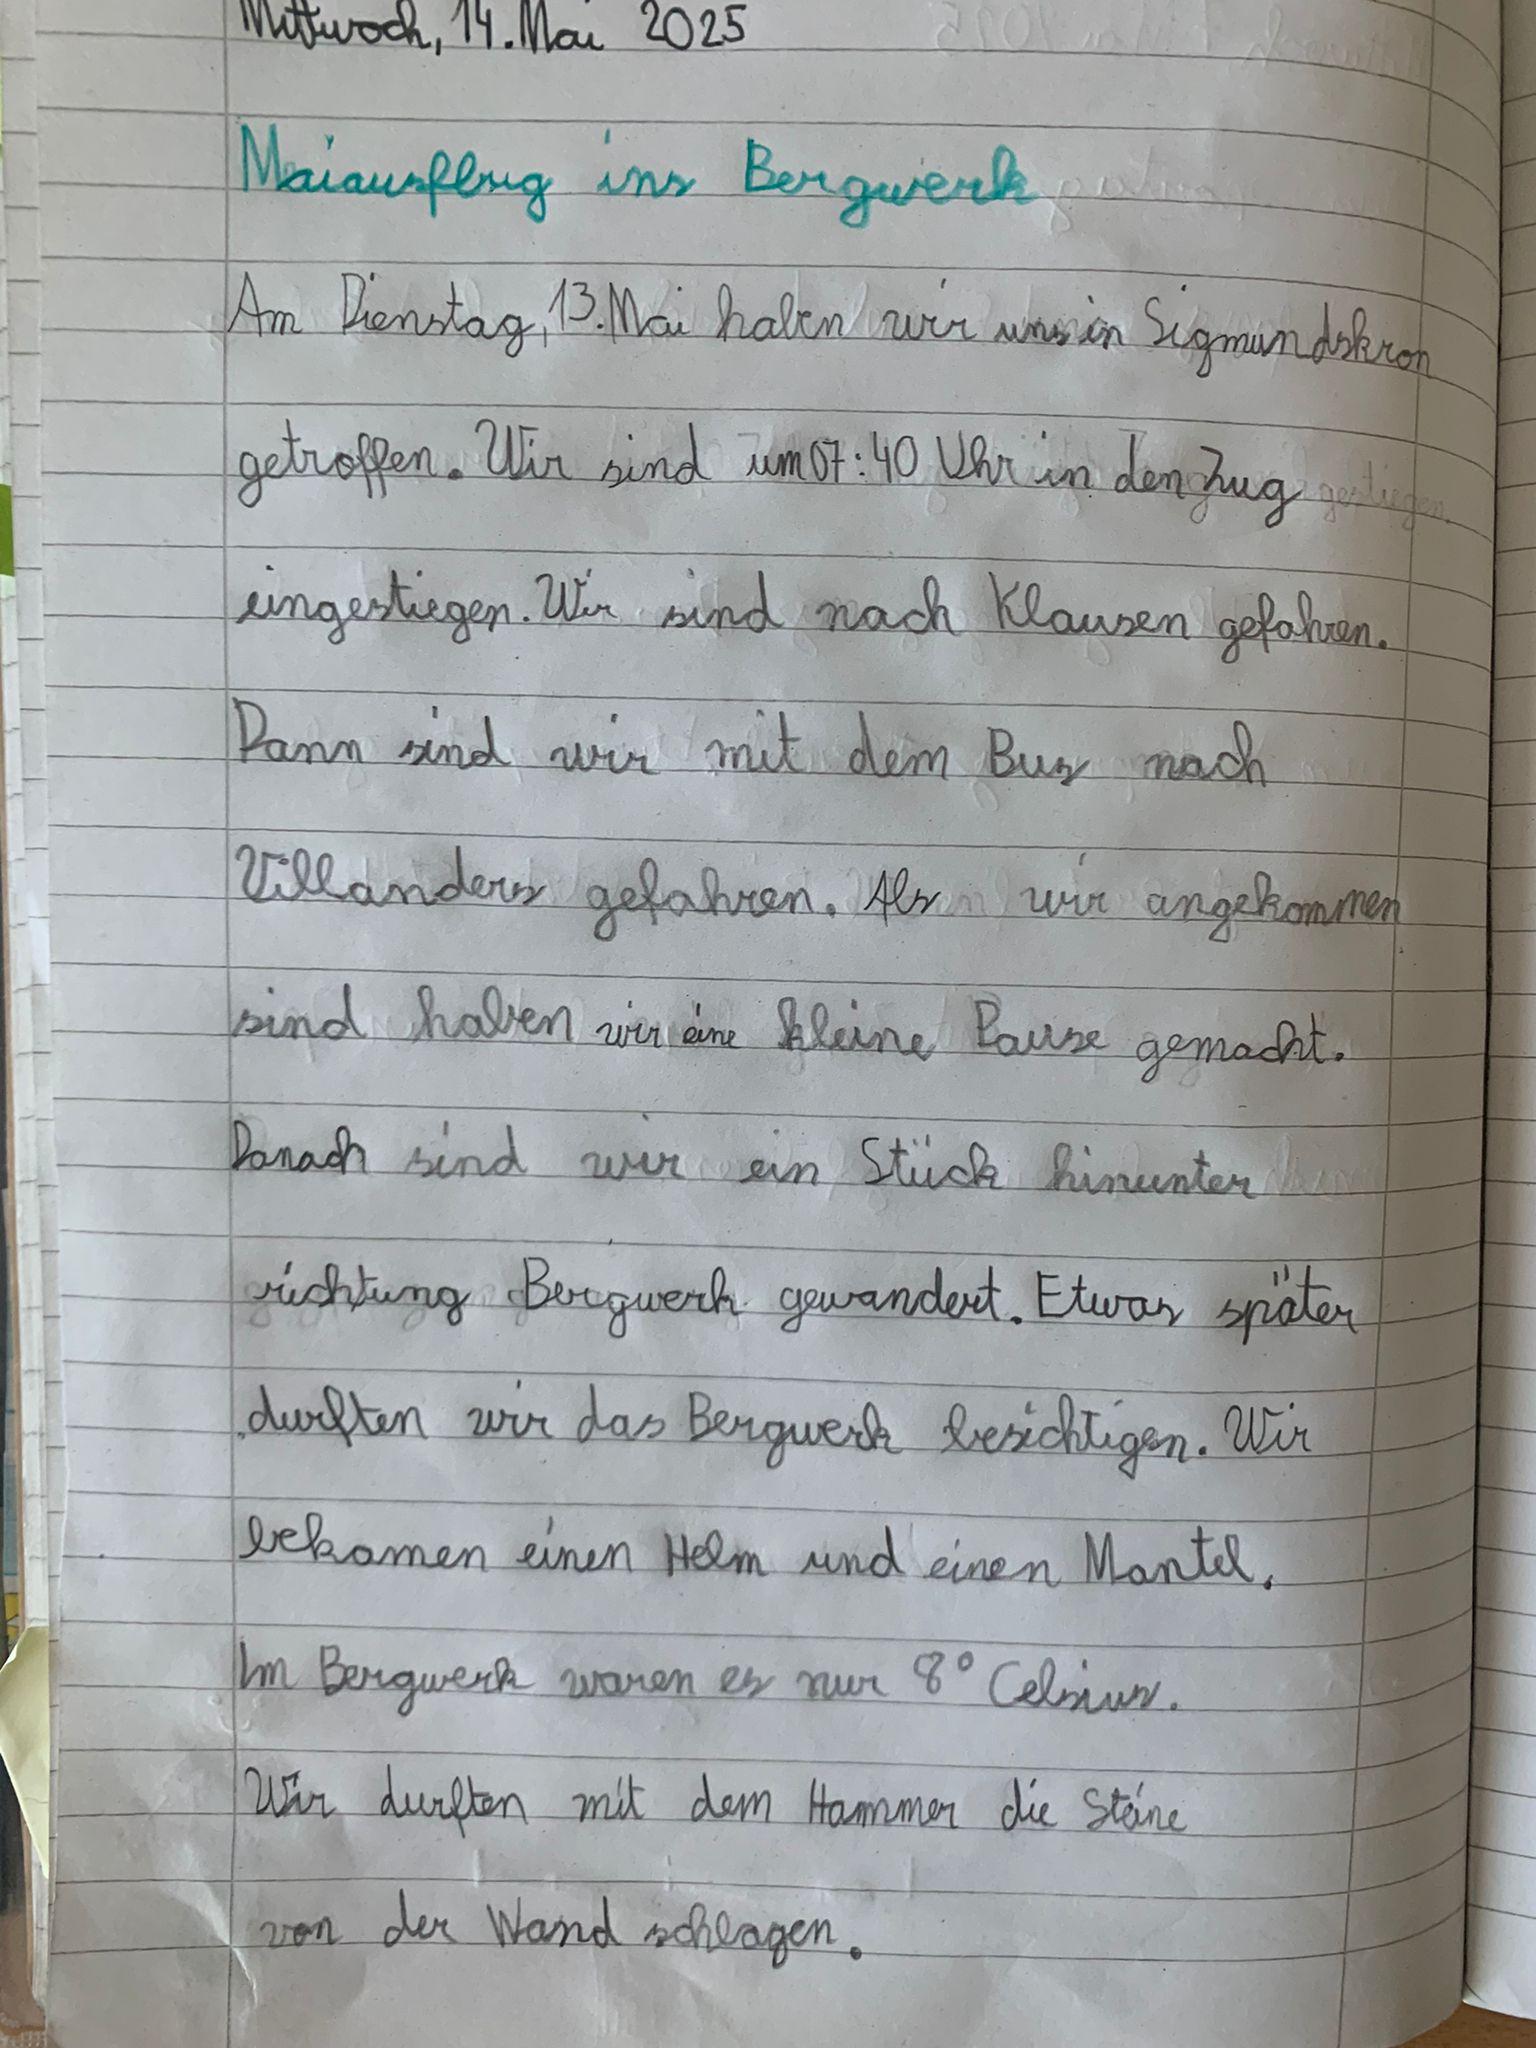 Mittwoch, 14. Mai 2025
Maiausflug ins Bergwerk
Am Dienstag, 13. Mai haben wir uns in Sigmundskron
getroffen. Wir sind um 07:40 Uhr in den Zug
eingestiegen. Wir sind nach Klausen gefahren.
Dann sind wir mit dem Bus nach
Villanders gefahren. Als wir angekommen
sind haben wir eine kleine Pause gemacht.
Danach sind wir ein Stück hinunter
richtung Bergwerk gewandert. Etwas später
durften wir das Bergwerk besichtigen. Wir
bekamen einen Helm und einen Mantel.
Im Bergwerk waren es nur 8° Celsius.
Wir durften mit dem Hammer die Steine
von der Wand schlagen.